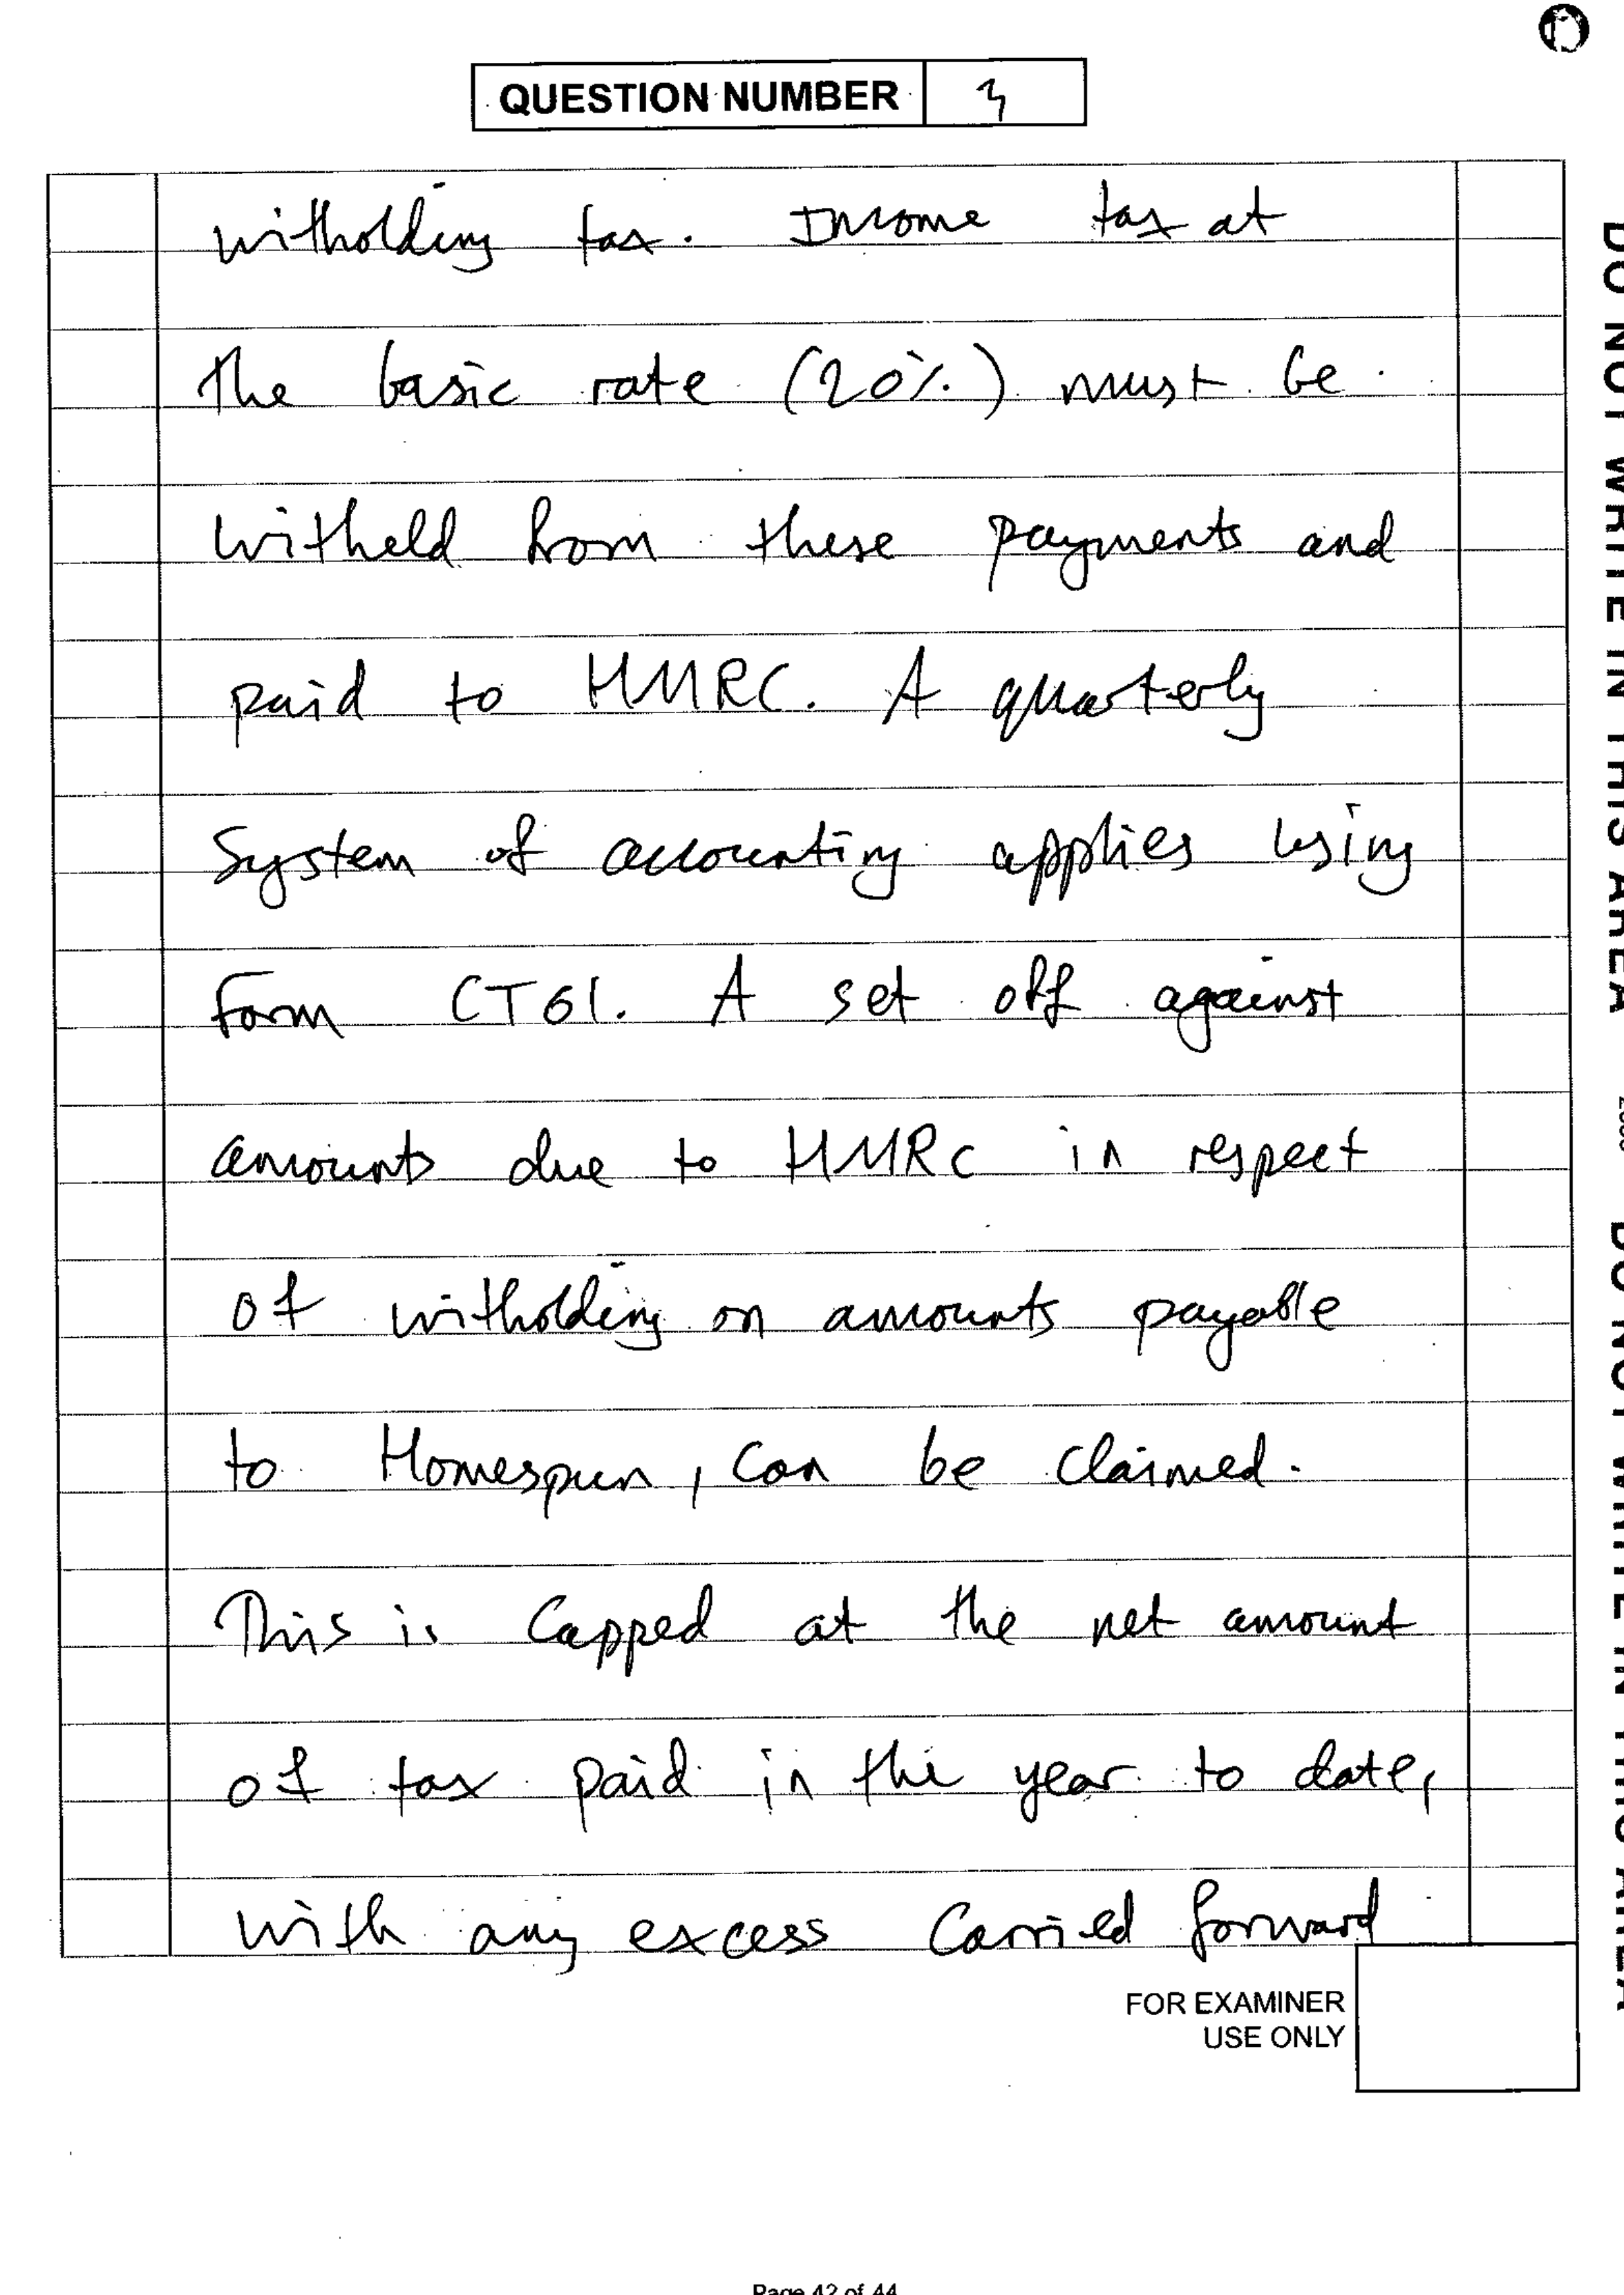 QUESTION NUMBER 3
witholding tax. Income tax at
the basic rate (20%) must be
witheld from these payments and
paid to HMRC. A quarterly
System of accounting applies using
form CT61. A set off against
amounts due to HMRC in respect
of witholding on amounts payable
to Homespun, can be claimed.
This is capped at the net amount
of tax paid in the year to date,
with any excess carried forward
FOR EXAMINER
USE ONLY
Page 42 of 44
DO NOT WRITE IN THIS AREA
DO NOT WRITE IN THIS AREA